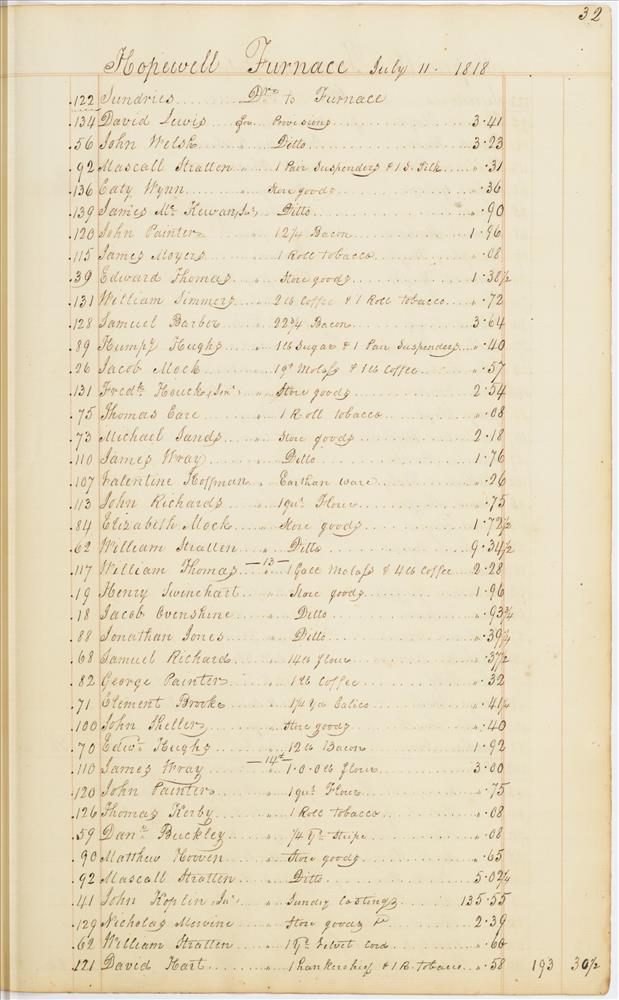 32
Hopewell Furnace July 11. 1818
122 Sundries Drs to Furnace
134 David Lewis for Provisions 3.41
56 John Welsh " Ditto 3.23
92 Mascall Stratten " 1 Pair Suspenders & 1 S. Silk ".31
136 Caty Wynn Store goods ".36
139 James Mc Kewan, " Ditto ".90
120 John Painter " 12 1/4 Bacon 1.96
115 James Moyers 1 Roll tobacco ".08
39 Edward Thomas " Store goods 1.38 1/2
131 William Simmers " 2 lb Coffee & 1 Roll tobacco ".72
128 Samuel Barber " 22 3/4 Bacon 3.64
89 Humpy Hughs " 1 lb Sugar & 1 Pair Suspenders ".40
26 Jacob Mock " 1 qt Molass & 1 lb Coffee ".57
131 Fredk Houck, Senr " Store goods 2.54
75 Thomas Care " 1 Roll tobacco ".08
73 Michael Sands " Store goods 2.18
110 James Wray " Ditto 1.76
107 Valentine Hoffman " Earthan ware ".26
113 John Richards " 1 qur Flour ".75
84 Elizabeth Mock " Store goods 1.72 1/2
62 William Stratten " Ditto 9.34 1/2
— 13 —
117 William Thomas " 1 Gall Molass & 4 lb Coffee 2.28
19 Henry Swinehart " Store goods 1.96
18 Jacob Ovenshine " Ditto ".93 3/4
88 Jonathan Jones " Ditto ".39 1/4
68 Samuel Richard " 14 lb flour ".37 1/2
82 George Painter " 1 lb Coffee ".32
71 Clement Brooke " 1 1/4 yd Calico ".41 1/4
100 John Sheller " Store goods ".40
70 Edwd Hughs " 12 lb Bacon 1.92
— 14th —
110 James Wray " 1.0.0 lb flour 3.00
120 John Painter " 1 qur Flour ".75
126 Thomas Kerby " 1 Roll tobacco ".08
59 Danl Buckley " 1/4 yd Stripe ".08
90 Matthew Hooven " Store goods ".65
92 Mascall Stratten " Ditto 5.02 1/4
41 John Koplin Junr " Sundry Castings 135.55
129 Nicholas Mervine " Store goods &c 2.39
62 William Stratten " 1 yd Velvet Cord ".66
121 David Hart " 1 hankerchief & 1 R. tobacco ".58 193 30 1/2